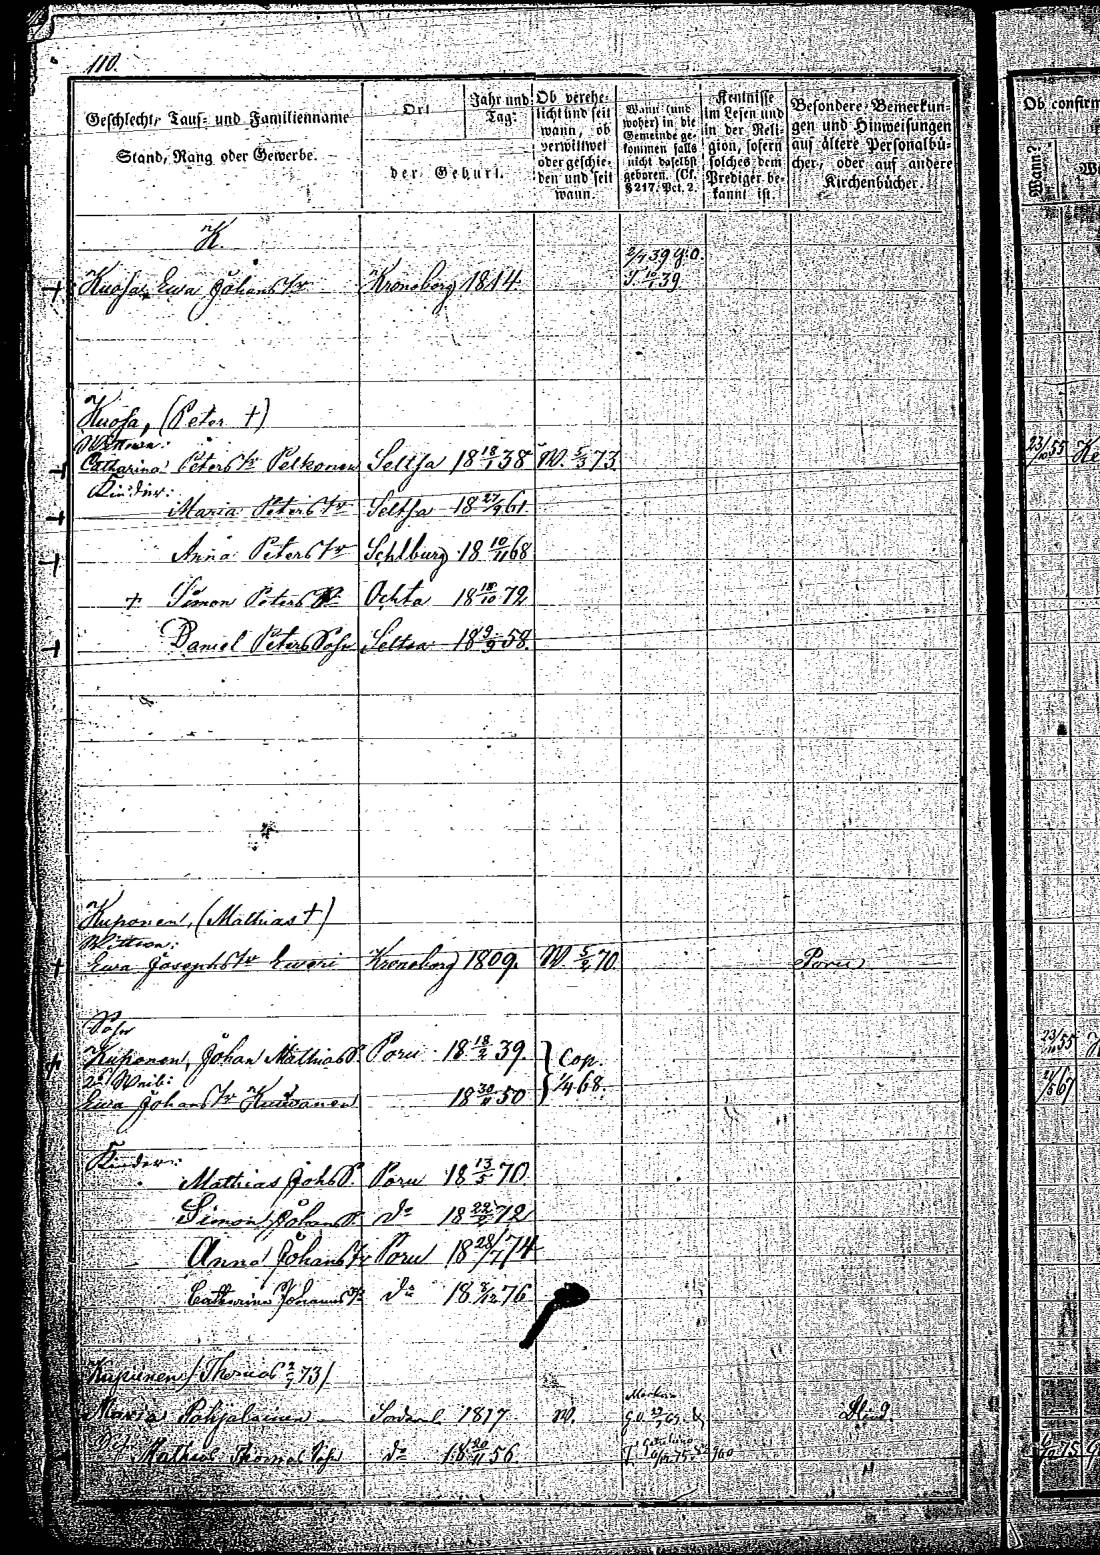 110.
Geschlecht, Tauf- und Familienname
Stand, Rang oder Gewerbe.
Ort
Jahr und Tag:
der Geburt.
Ob verehe-
licht und seit
wann, ob
verwittwet
oder geschie-
den und seit
wann.
Wann (und
woher) in die
Gemeinde ge-
kommen falls
nicht daselbst
geboren. (Cf.
§ 217. Pct. 2.
Kentnisse
im Lesen und
in der Reli-
gion, sofern
solches dem
Prediger be-
kannt ist.
Besondere Bemerkun-
gen und Hinweisungen
auf ältere Personalbü-
cher, oder auf andere
Kirchenbücher.
Ob confirm
Wann?
K.
2/1 39 g.o.
Kuosa, Ewa Johans Tr Kronoborg 1814. T. 10/1 39
Kuosa, (Peter †)
Wittwe:
Catharina Peters Tr Pelkonen Seltsa 18 18/1 38 W. 5/3 73. 23/10 55
Kinder:
Maria Peters Tr Seltsa 18 27/9 61.
Anna Peters Tr Schlburg 18 10/11 68
+ Simon Peters Ochta 18 18/10 72
Daniel Peters Sohn Seltsa 18 9/9 58.
Kuponen, (Mathias †)
Wittwe:
Ewa Josephs Tr Eweri Kronoborg 1809. W. 5/4 70. Poru
Sohn
Kuponen, Johan Mathias S. Poru 18 18/2 39. Cop. 23/10 55
2s Weib: 1/4 68.
Ewa Johans Tr 18 30/11 50 67
Kinder:
Mathias Johs S. Poru 18 13/5 70
Simon Johans S. do 18 22/2 72
Anna Johans Tr Poru 18 28/7 74
Catharina Johanns Tr do 18 3/12 76
Kupiinen, (Thomas 2/1 73)
Maria Pohjalainen 1817 W. Blind.
Mathias Thomas Sohn do 18 20/11 56.